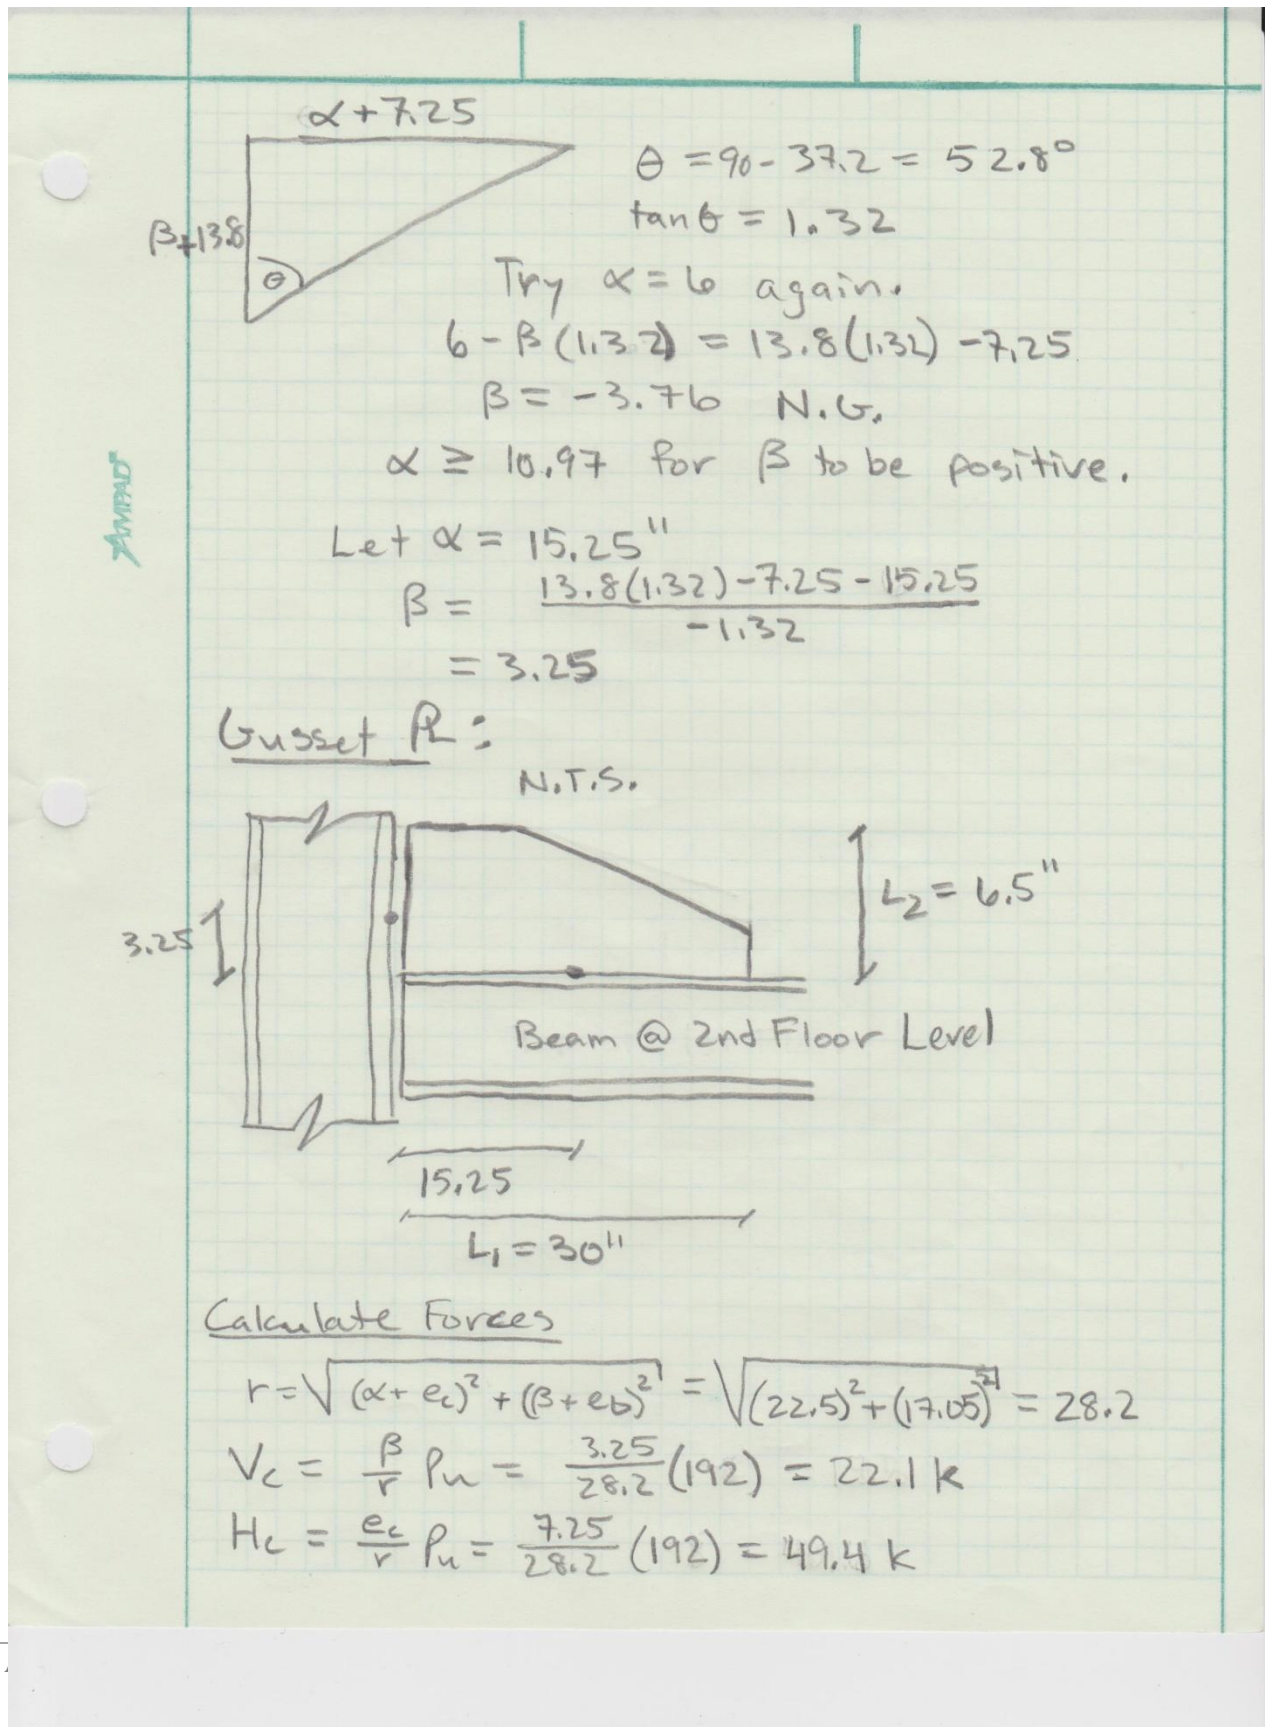 α + 7.25
θ = 90 - 37.2 = 52.8°
tan θ = 1.32
β+13.8
θ
Try α = 6 again.
6 - β (1.32) = 13.8(1.32) - 7.25
β = -3.76 N.G.
α ≥ 10.97 for β to be positive.
AMPAD
Let α = 15.25"
β = 13.8(1.32) - 7.25 - 15.25 / -1.32
= 3.25
Gusset PL:
N.T.S.
L2 = 6.5"
3.25
Beam @ 2nd Floor Level
15.25
L1 = 30"
Calculate Forces
r = √(α + ec)² + (β + eb)² = √(22.5)² + (17.05)² = 28.2
Vc = β/r Pu = 3.25/28.2 (192) = 22.1 k
Hc = ec/r Pu = 7.25/28.2 (192) = 49.4 k